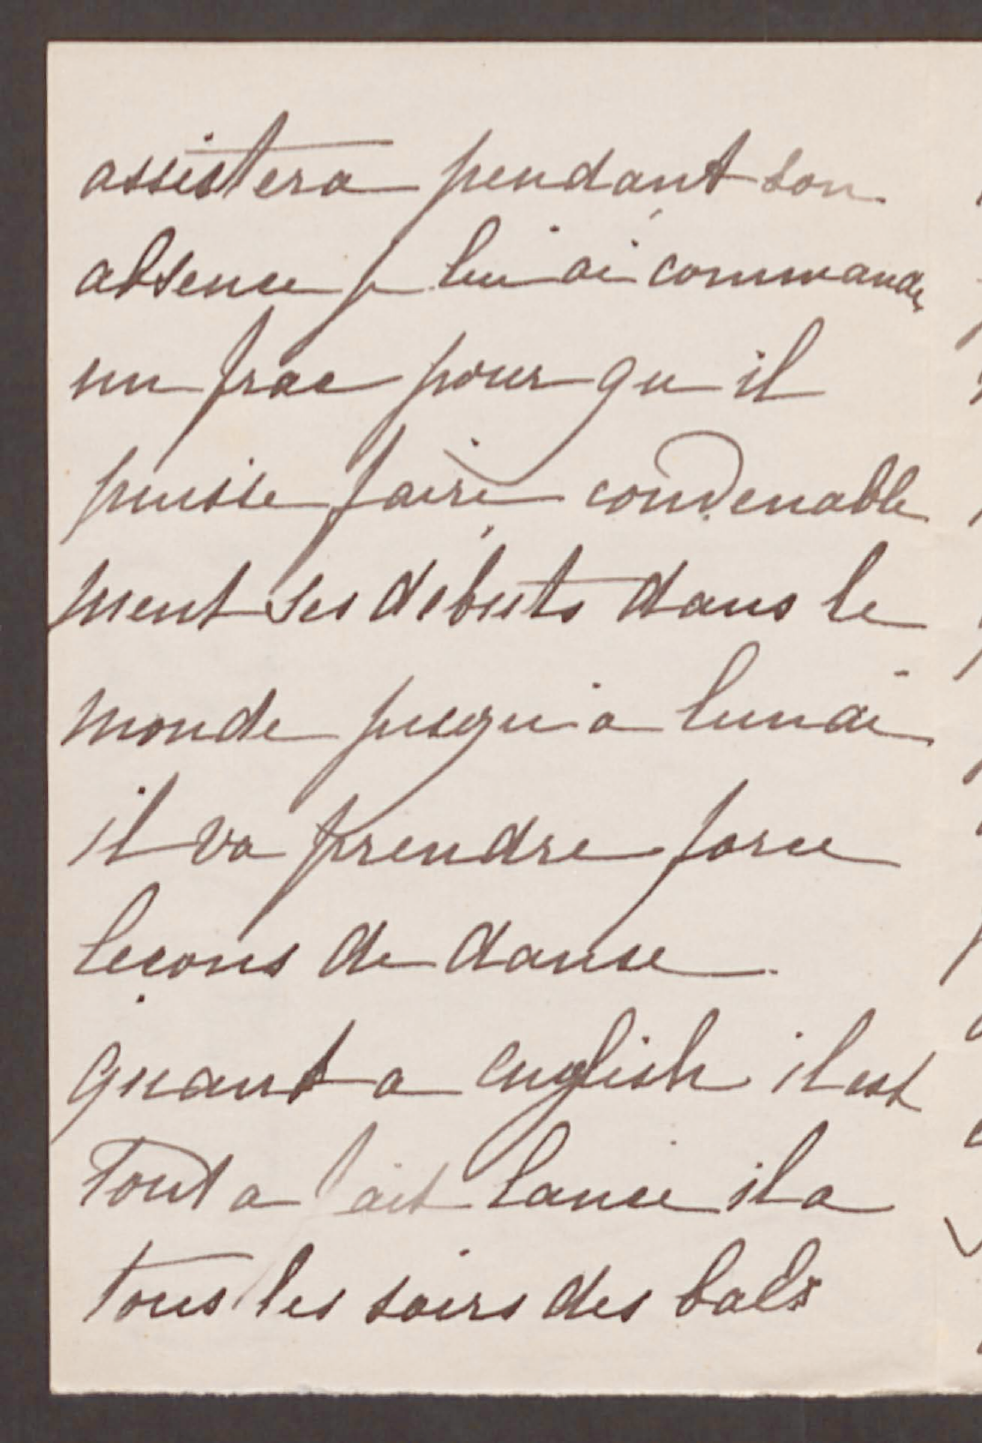 assistera pendant son
absence je lui ai commandé
un frac pour qu il
puisse faire convenable
ment ses débuts dans le
monde jusqu'a lundi
il va prendre force
leçons de danse
quant a english il est
tout a fait lancé il a
tous les soirs des bals